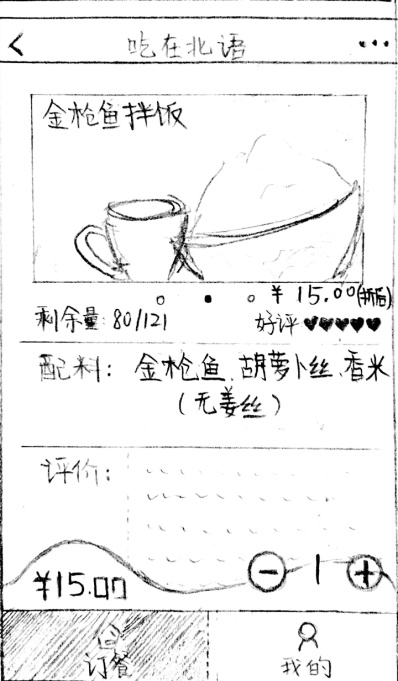 < 吃在北语 ...
金枪鱼拌饭
¥ 15.00(折后)
剩余量: 80/121 好评 ♥♥♥♥♥
配料: 金枪鱼、胡萝卜丝、香米
(无姜丝)
评价:
¥15.00 - 1 +
订餐 我的